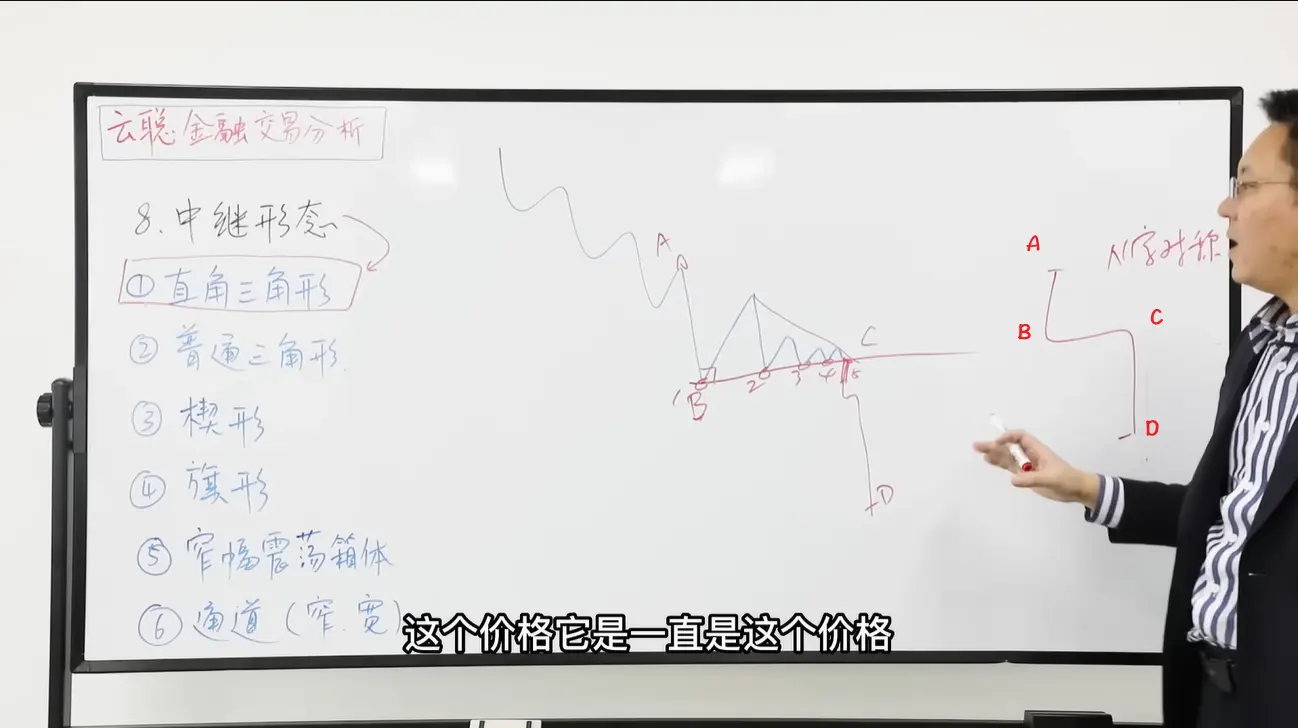 云聪金融交易分析
8.中继形态
① 直角三角形
② 普通三角形
③ 楔形
④ 旗形
⑤ 窄幅震荡箱体
⑥ 通道(窄.宽)
A
C
1 B 2 3 4 5
D
N字对称
A
B
C
D
这个价格它是一直是这个价格